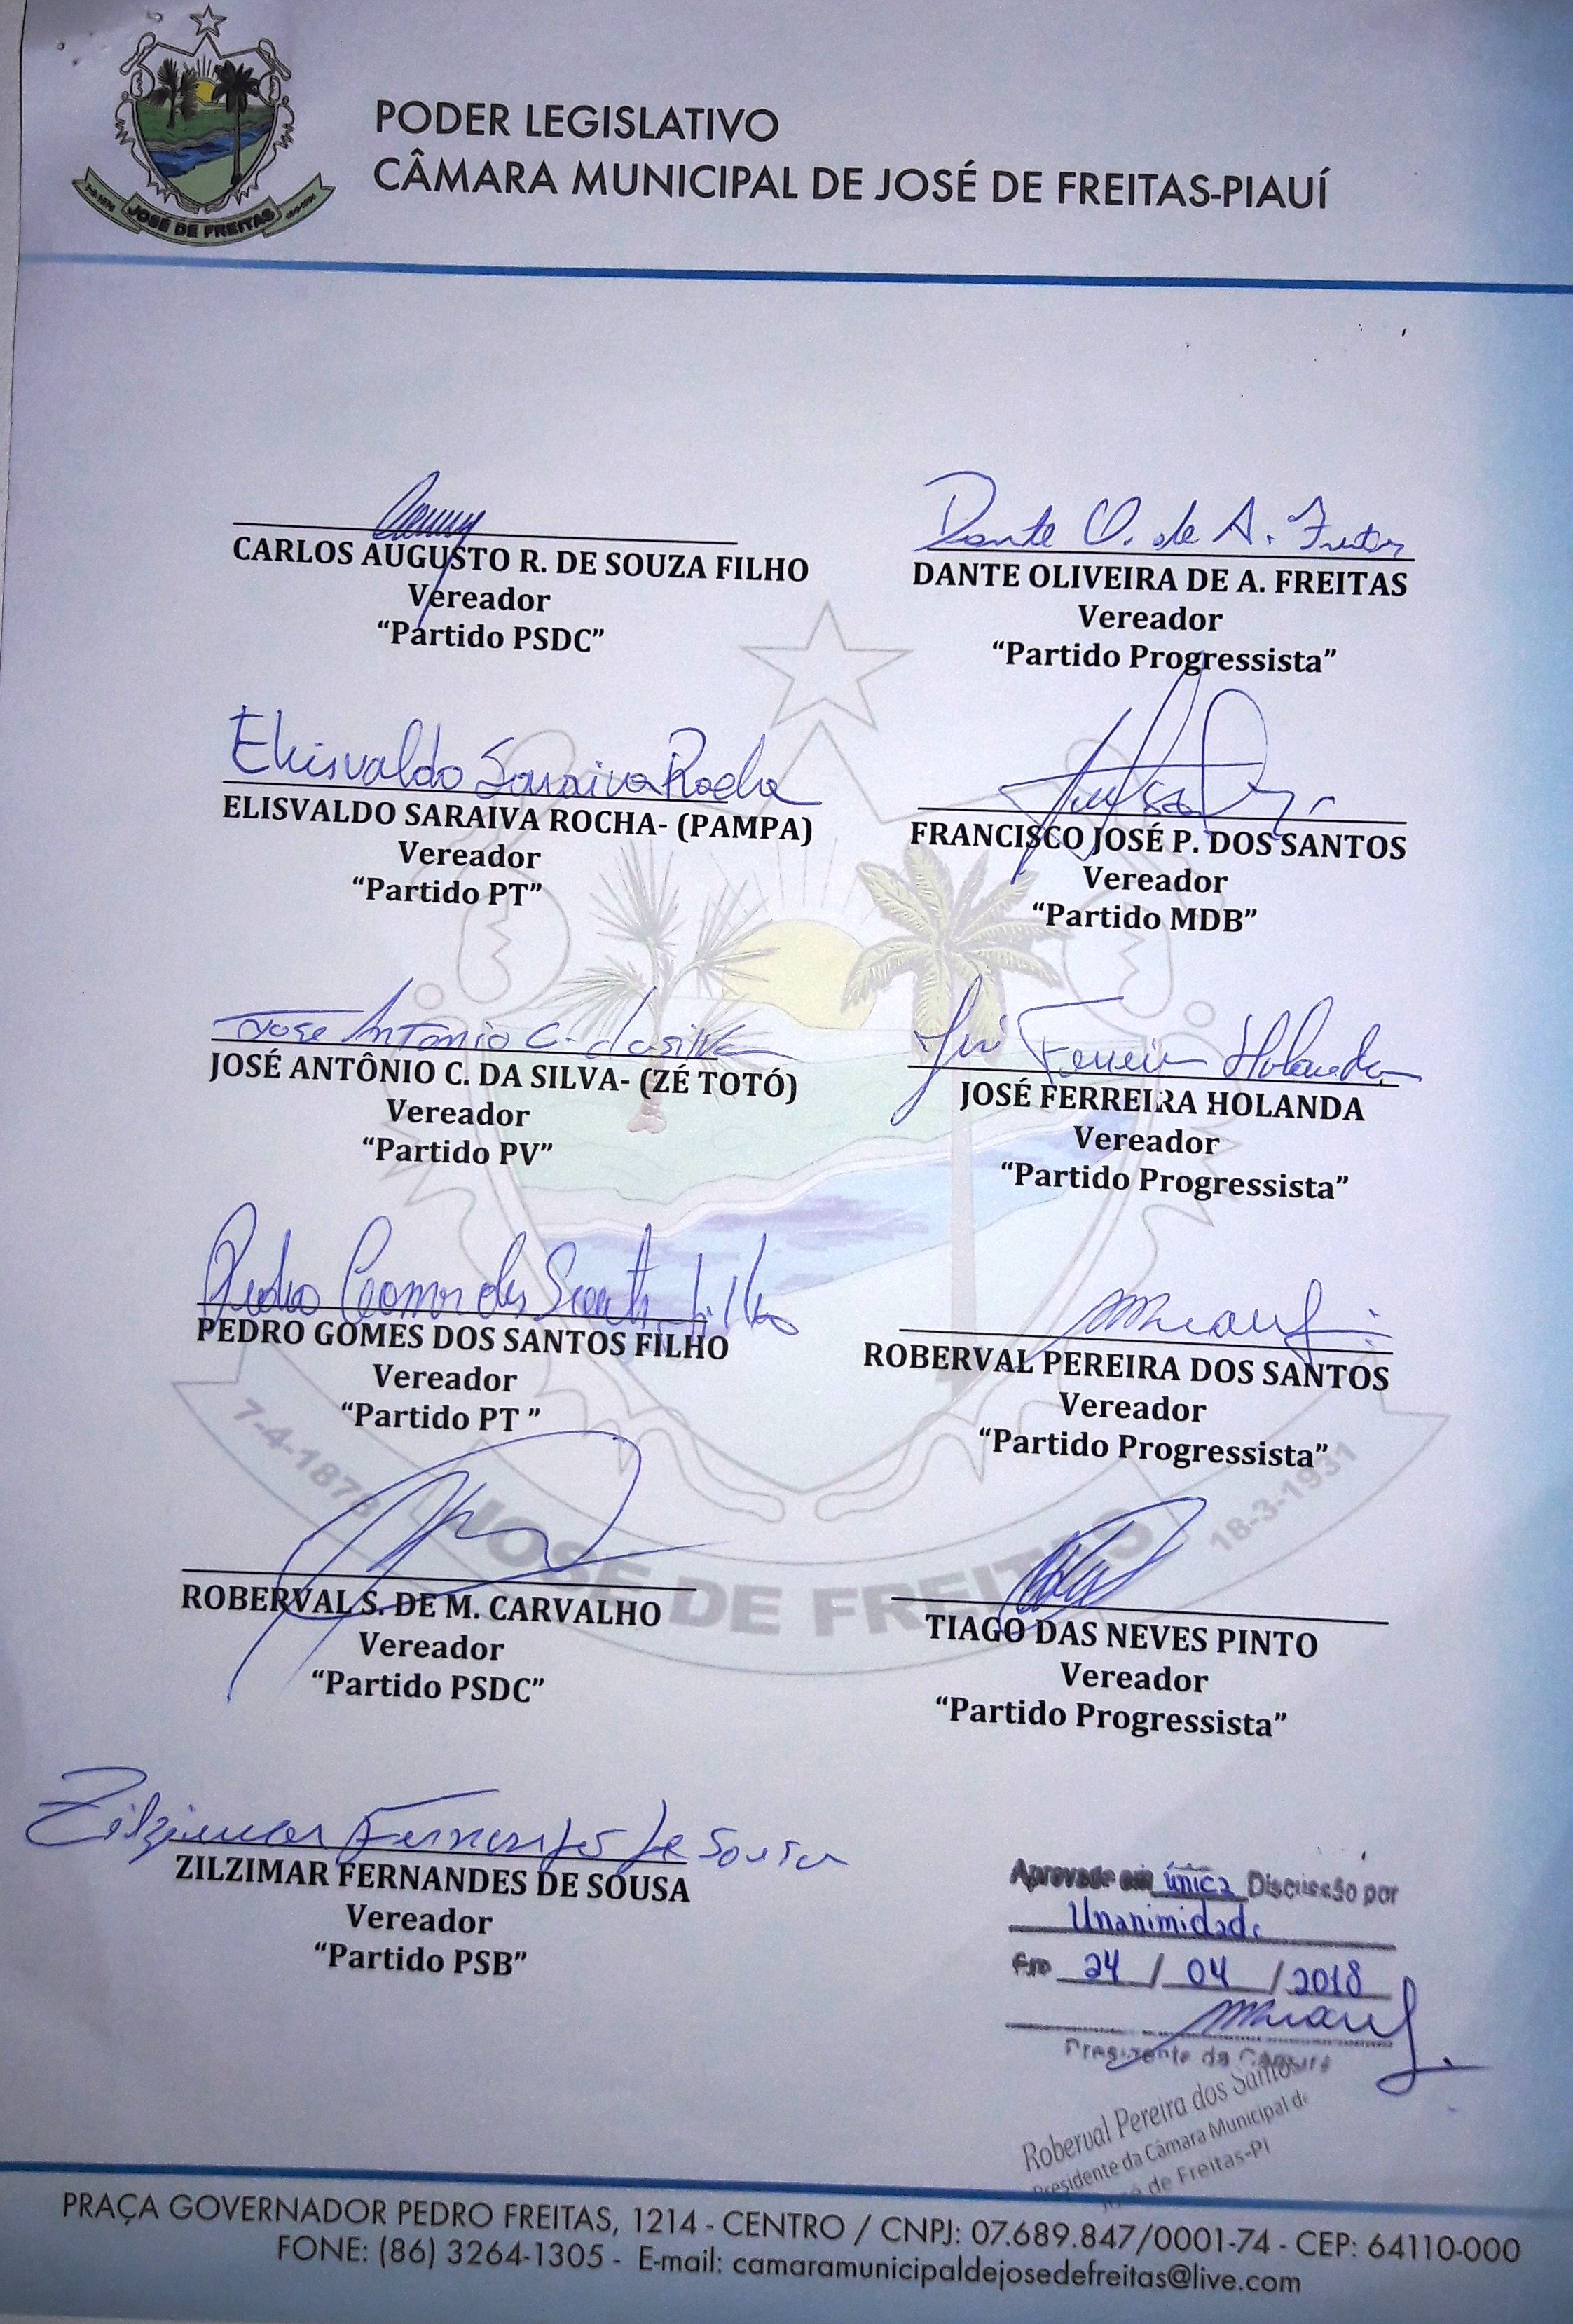 PODER LEGISLATIVO
CÂMARA MUNICIPAL DE JOSÉ DE FREITAS-PIAUÍ
JOSÉ DE FREITAS
CARLOS AUGUSTO R. DE SOUZA FILHO
Vereador
“Partido PSDC”
Dante O. de A. Freitas
DANTE OLIVEIRA DE A. FREITAS
Vereador
“Partido Progressista”
Elisvaldo Saraiva Rocha
ELISVALDO SARAIVA ROCHA- (PAMPA)
Vereador
“Partido PT”
FRANCISCO JOSÉ P. DOS SANTOS
Vereador
“Partido MDB”
José Antonio C. da silva
JOSÉ ANTÔNIO C. DA SILVA- (ZÉ TOTÓ)
Vereador
“Partido PV”
José Ferreira Holanda
JOSÉ FERREIRA HOLANDA
Vereador
“Partido Progressista”
Pedro Gomes dos Santos Filho
PEDRO GOMES DOS SANTOS FILHO
Vereador
“Partido PT ”
ROBERVAL PEREIRA DOS SANTOS
Vereador
“Partido Progressista”
7-4-1878
JOSÉ DE FREITAS
18-3-1931
ROBERVAL S. DE M. CARVALHO
Vereador
“Partido PSDC”
TIAGO DAS NEVES PINTO
Vereador
“Partido Progressista”
Zilzimar Fernandes de Sousa
ZILZIMAR FERNANDES DE SOUSA
Vereador
“Partido PSB”
Aprovado em única Discussão por
Unanimidade
Em 24 / 04 / 2018
Presidente da Câmara
Roberval Pereira dos Santos
Presidente da Câmara Municipal de
José de Freitas-PI
PRAÇA GOVERNADOR PEDRO FREITAS, 1214 - CENTRO / CNPJ: 07.689.847/0001-74 - CEP: 64110-000
FONE: (86) 3264-1305 - E-mail: camaramunicipaldejosedefreitas@live.com